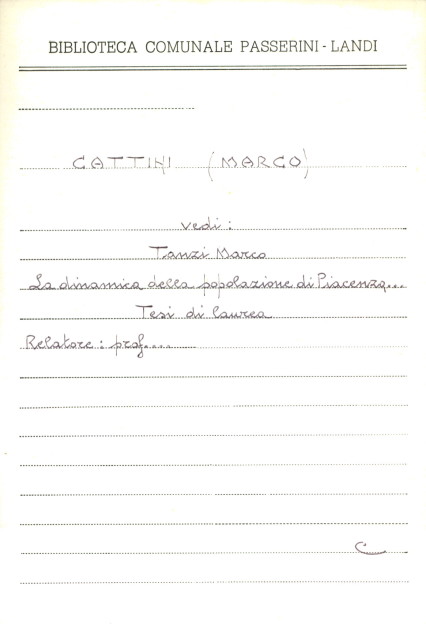 BIBLIOTECA COMUNALE PASSERINI - LANDI
CATTINI (MARCO)
vedi:
Tanzi Marco
La dinamica della popolazione di Piacenza...
Tesi di laurea
Relatore: prof....
C